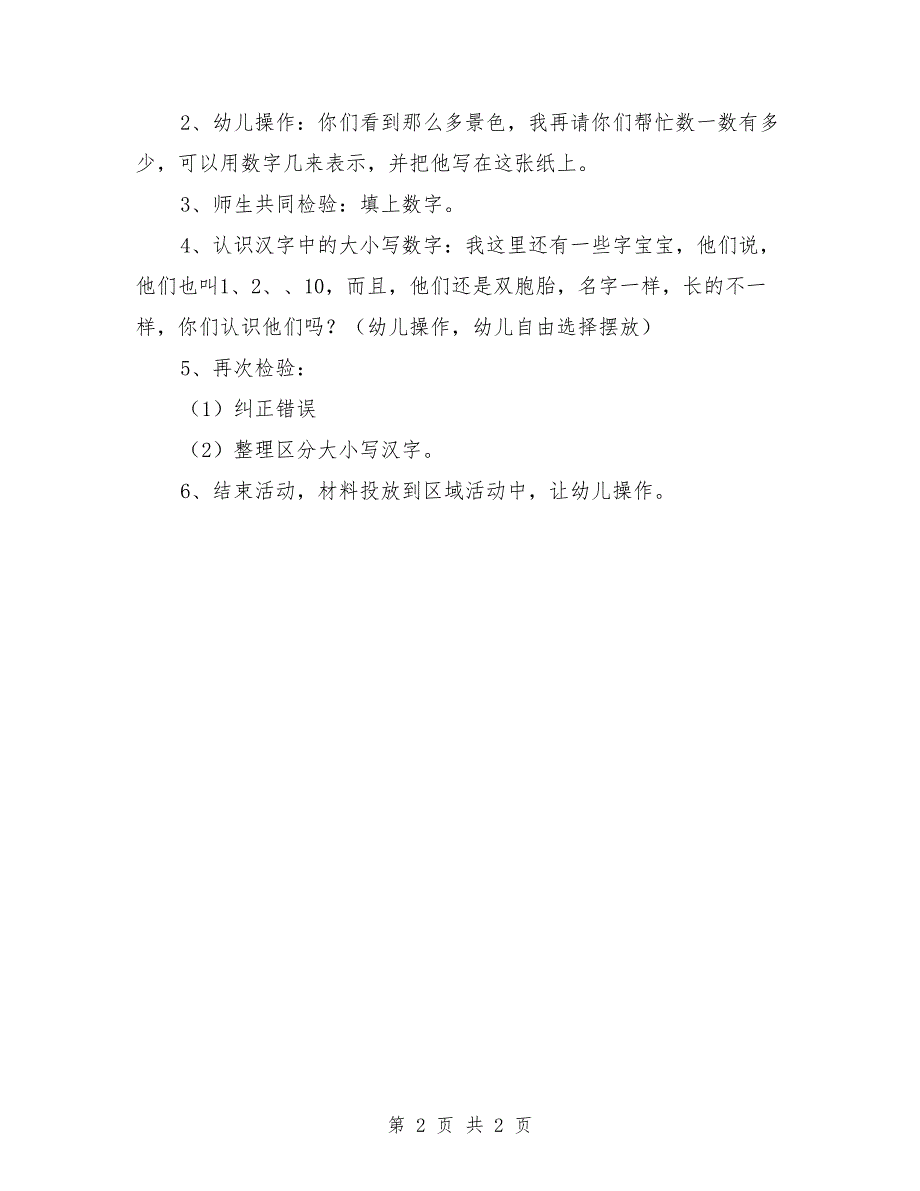 2、幼儿操作：你们看到那么多景色，我再请你们帮忙数一数有多
少，可以用数字几来表示，并把他写在这张纸上。
3、师生共同检验：填上数字。
4、认识汉字中的大小写数字：我这里还有一些字宝宝，他们说，
他们也叫1、2、、10，而且，他们还是双胞胎，名字一样，长的不一
样，你们认识他们吗？（幼儿操作，幼儿自由选择摆放）
5、再次检验：
（1）纠正错误
（2）整理区分大小写汉字。
6、结束活动，材料投放到区域活动中，让幼儿操作。
第 2 页 共 2 页